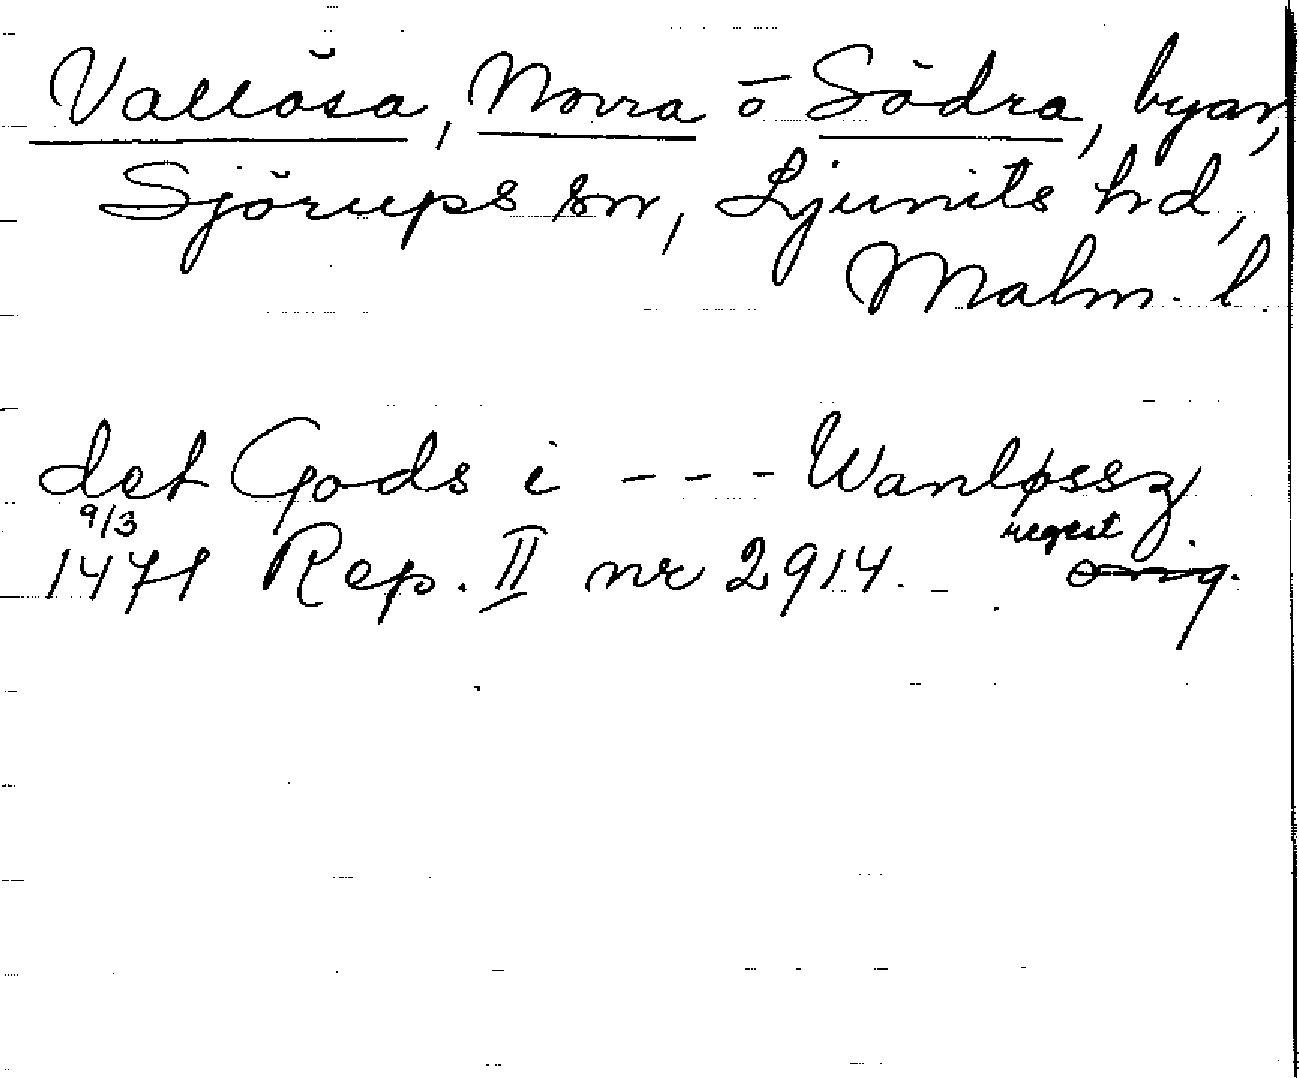 Vallösa, Norra o Södra, byar,
Sjörups sn, Ljunits hd,
Malm. l.
det Gods i --- Wanløssz
9/3 regest
1471 Rep. II nr 2914. orig.